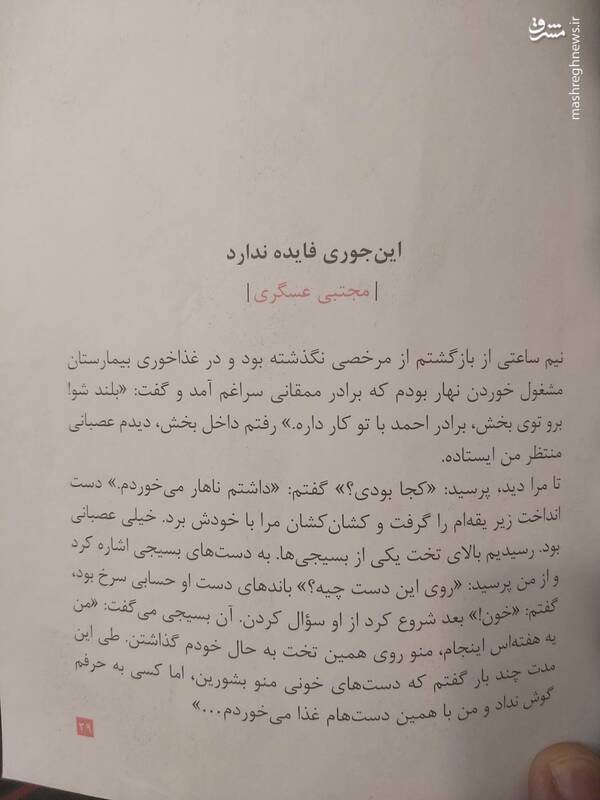 مشرق
mashreghnews.ir
این‌جوری فایده ندارد
|مجتبی عسگری|
نیم ساعتی از بازگشتم از مرخصی نگذشته بود و در غذاخوری بیمارستان
مشغول خوردن نهار بودم که برادر ممقانی سراغم آمد و گفت: «بلند شو!
برو توی بخش، برادر احمد با تو کار داره.» رفتم داخل بخش، دیدم عصبانی
منتظر من ایستاده.
تا مرا دید، پرسید: «کجا بودی؟» گفتم: «داشتم ناهار می‌خوردم.» دست
انداخت زیر یقه‌ام را گرفت و کشان‌کشان مرا با خودش برد. خیلی عصبانی
بود. رسیدیم بالای تخت یکی از بسیجی‌ها. به دست‌های بسیجی اشاره کرد
و از من پرسید: «روی این دست چیه؟» باندهای دست او حسابی سرخ بود،
گفتم: «خون!» بعد شروع کرد از او سؤال کردن. آن بسیجی می‌گفت: «من
یه هفته‌اس اینجام، منو روی همین تخت به حال خودم گذاشتن. طی این
مدت چند بار گفتم که دست‌های خونی منو بشورین، اما کسی به حرفم
گوش نداد و من با همین دست‌هام غذا می‌خوردم...»
۳۹